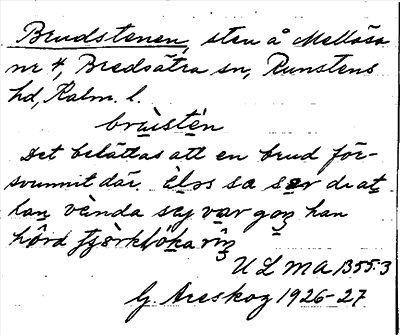 Brudstenen, sten å Mellösa
nr 4, Bredsätra sn, Runstens
hd, Kalm. l.
brùistén
Det belättas att en brud för-
svunnit där, àlos sa sær de at
han vànda sej var gon han
hörd
U L M A 1355:3
G. Areskog 1926-27